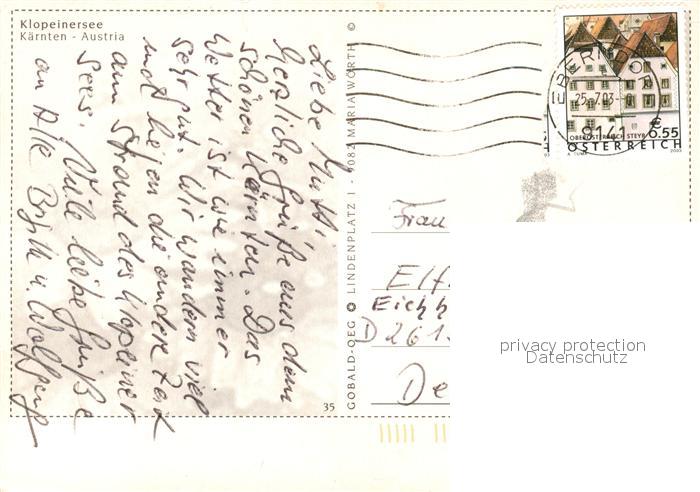 Klopeinersee
Kärnten - Austria
Liebe Mutti,
Herzliche Grüße aus dem
schönen Kärnten. Das
Wetter ist wie immer
sehr gut. Wir wandern viel
und liegen die andere Zeit
am Strand des Klopeiner
Sees. Viele liebe Grüße
an Alle
35
GOBALD-OEG LINDENPLATZ 1 - 9082 MARIA WÖRTH ©
EBERNDORF
25.7.03
9141
€0.55
OBERÖSTERREICH STEYR
ÖSTERREICH
2003
Frau
Elf
Eichh
D 261
De
privacy protection
Datenschutz